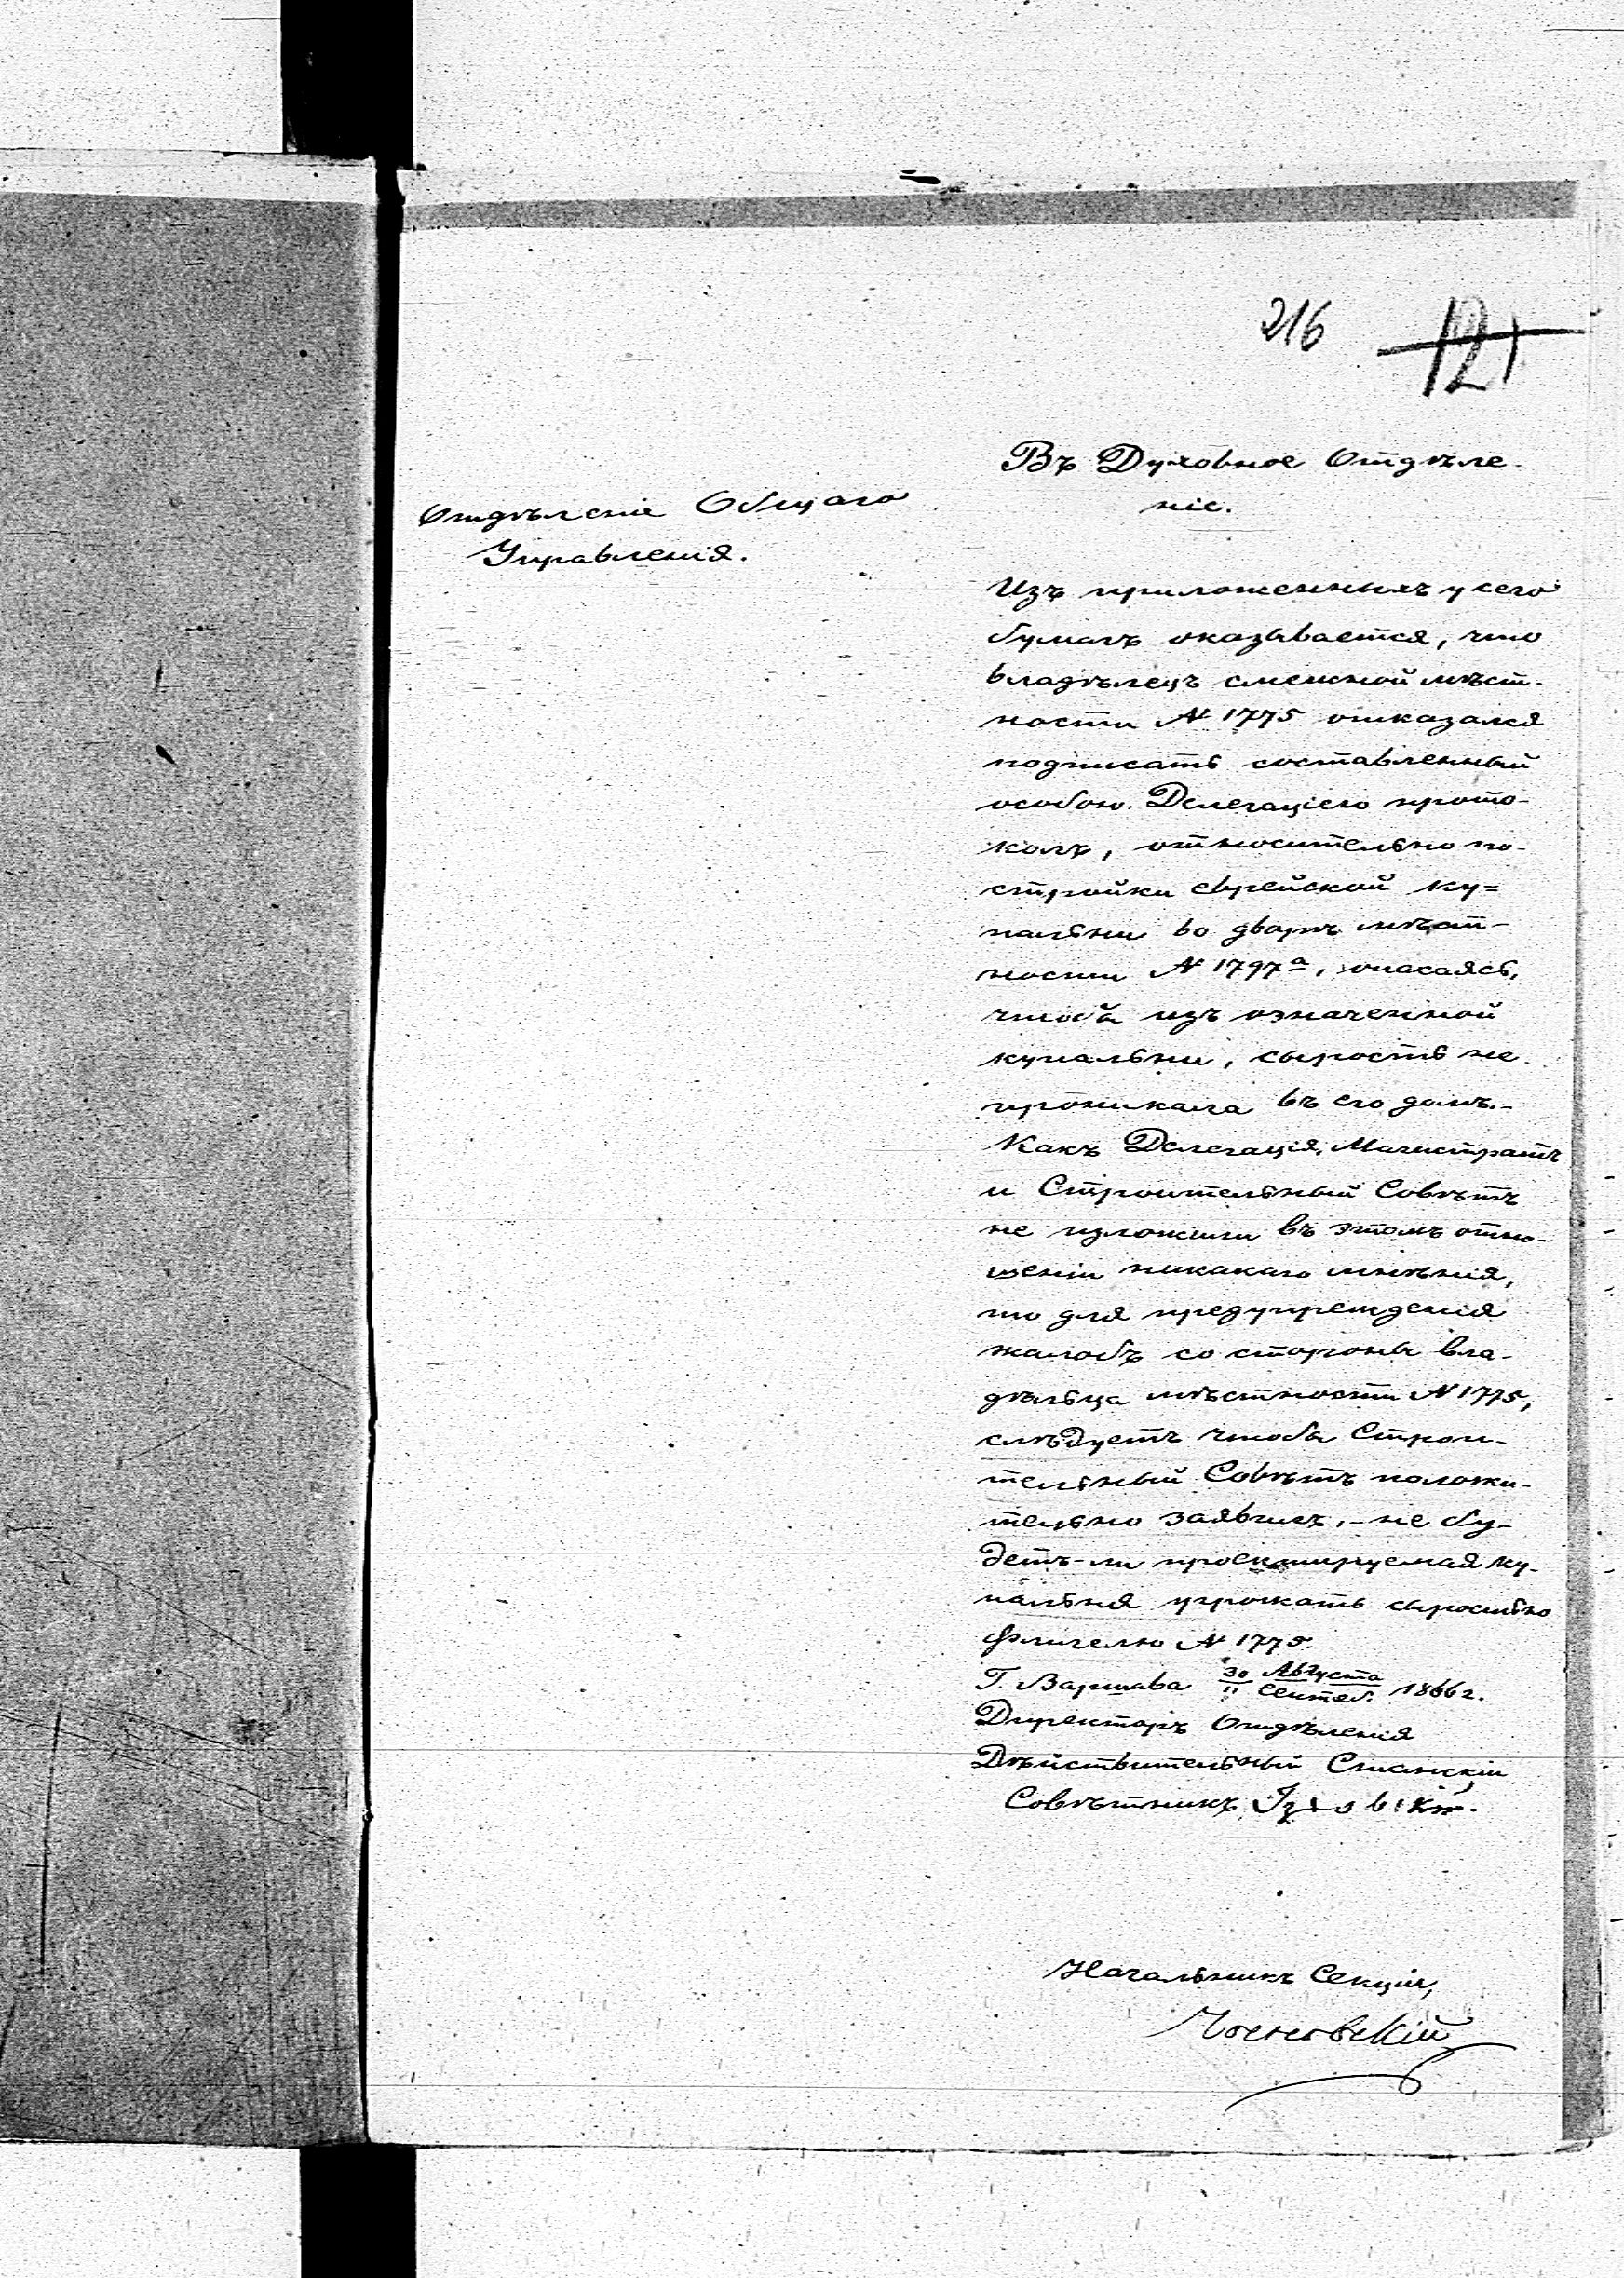 216 121
Въ Духовное Отдѣле-
ніе.
Отдѣленіе Общаго
Управленія.
Изъ приложенныхъ у сего
бумагъ оказывается, что
владѣлецъ смежной мѣст-
ности № 1775 отказался
подписать составленный
особою Делегаціею прото-
колъ, относительно по-
стройки еврейской ку=
пальни во дворѣ мѣст-
ности № 1797а, опасаясь,
чтобы изъ означенной
купальни, сырость не
проникала въ его домъ.-
Какъ Делегація, Магистратъ
и Строительный Совѣтъ
не изложили въ этомъ отно-
шеніи никакаго мнѣнія,
то для предупрежденія
жалобъ со стороны вла-
дѣльца мѣстности № 1775,
слѣдуетъ чтобы Строи-
тельный Совѣтъ положи-
тельно заявилъ, - не бу-
детъ-ли проектируемая ку-
пальня угрожать сыростью
флигелю № 1775.
Г. Варшава 30 Августа / 11 Сентяб. 1866 г.
Директоръ Отдѣленія
Дѣйствительный Статскій
Совѣтникъ
Начальникъ Секціи,